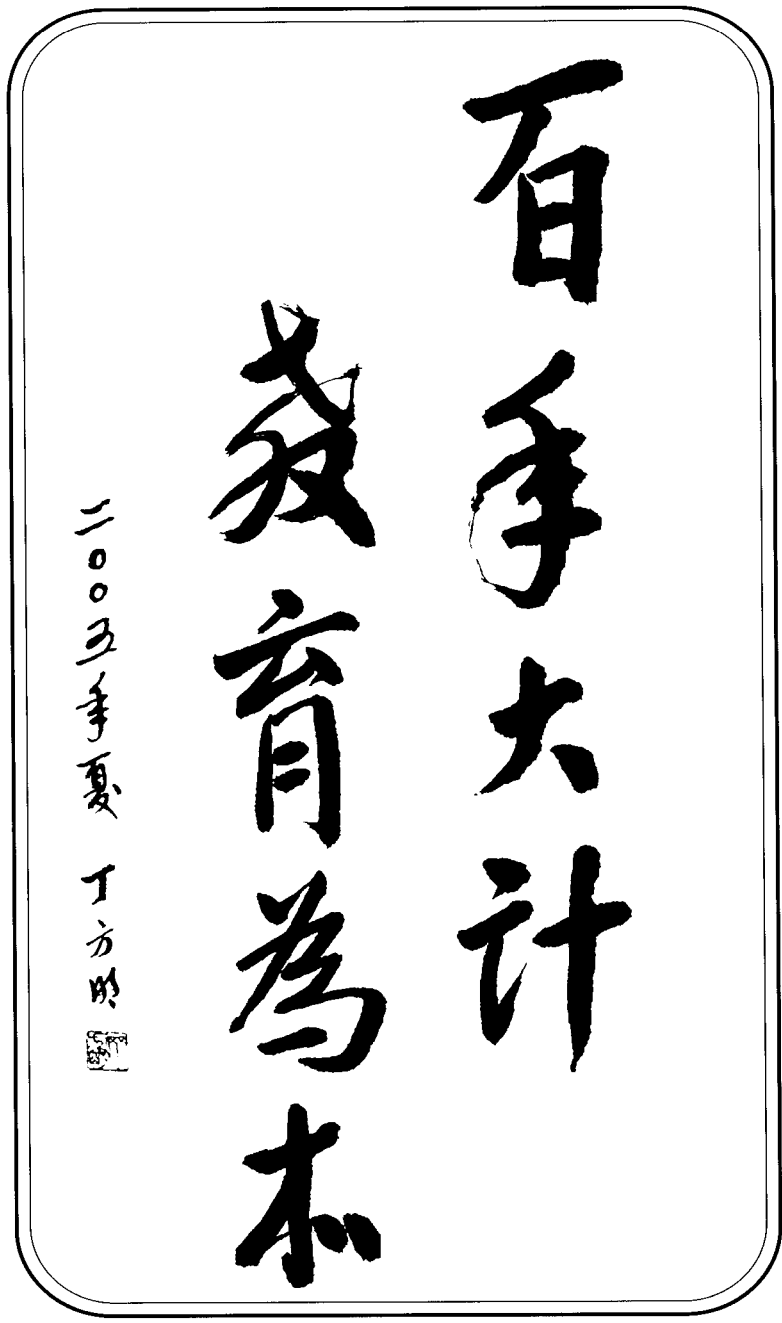 百年大计
教育為本
二〇〇五年夏 丁方明